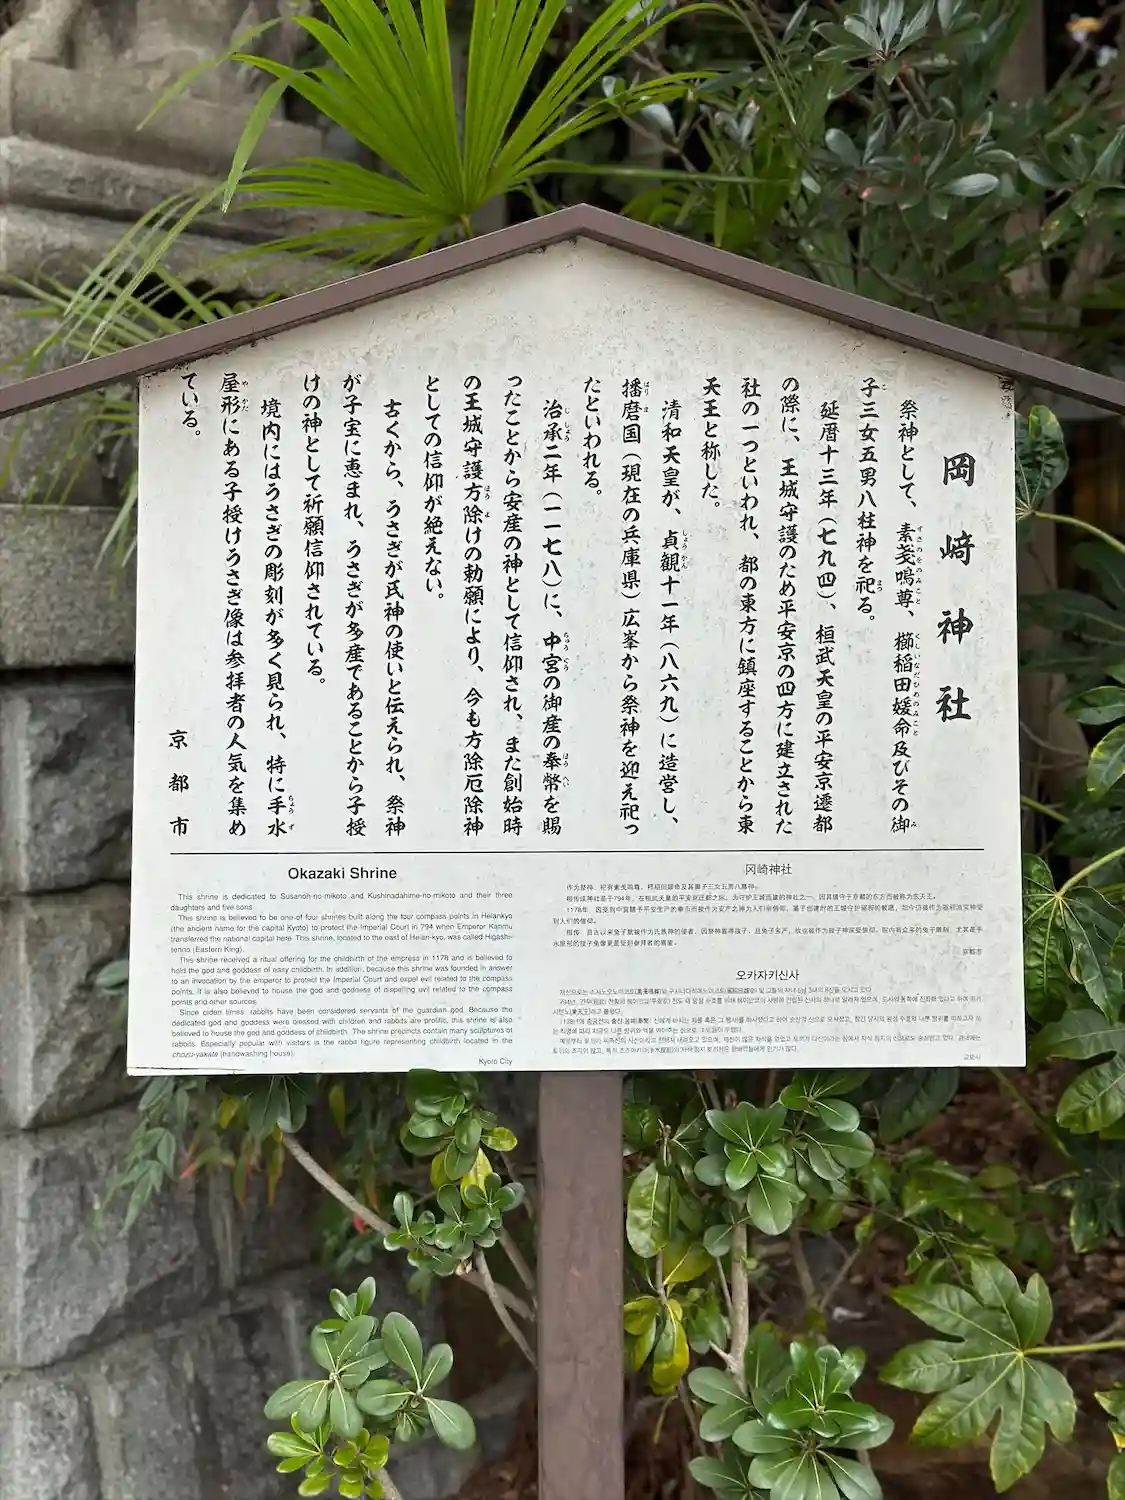 岡﨑神社
祭神として、素戔嗚尊、櫛稲田媛命及びその御
子三女五男八柱神を祀る。
延暦十三年（七九四）、桓武天皇の平安京遷都
の際に、王城守護のため平安京の四方に建立された
社の一つといわれ、都の東方に鎮座することから東
天王と称した。
清和天皇が、貞観十一年（八六九）に造営し、
播磨国（現在の兵庫県）広峯から祭神を迎え祀っ
たといわれる。
治承二年（一一七八）に、中宮の御産の奉幣を賜
ったことから安産の神として信仰され、また創始時
の王城守護方除けの勅願により、今も方除厄除神
としての信仰が絶えない。
古くから、うさぎが氏神の使いと伝えられ、祭神
が子宝に恵まれ、うさぎが多産であることから子授
けの神として祈願信仰されている。
境内にはうさぎの彫刻が多く見られ、特に手水
屋形にある子授けうさぎ像は参拝者の人気を集め
ている。
京都市
Okazaki Shrine
This shrine is dedicated to Susanoh-no-mikoto and Kushinadahime-no-mikoto and their three
daughters and five sons.
This shrine is believed to be one of four shrines built along the four compass points in Heiankyo
(the ancient name for the capital Kyoto) to protect the Imperial Court in 794 when Emperor Kanmu
transferred the national capital here. This shrine, located to the east of Heian-kyo, was called Higashi-
tenno (Eastern King).
This shrine received a ritual offering for the childbirth of the empress in 1178 and is believed to
hold the god and goddess of easy childbirth. In addition, because this shrine was founded in answer
to an invocation by the emperor to protect the Imperial Court and expel evil related to the compass
points, it is also believed to house the god and goddess of dispelling evil related to the compass
points and other sources.
Since olden times, rabbits have been considered servants of the guardian god. Because the
dedicated god and goddess were blessed with children and rabbits are prolific, this shrine is also
believed to house the god and goddess of childbirth. The shrine precincts contain many sculptures of
rabbits. Especially popular with visitors is the rabbit figure representing childbirth located in the
chozu-yakata (handwashing house).
Kyoto City
冈崎神社
京都市
오카자키신사
교토시